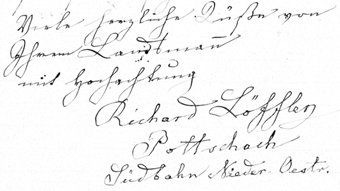 Viele herzliche Grüße von
Ihrem Landsmann
mit Hochachtung
Richard Löffler
Pottschach
Südbahn Nieder-Oestr.